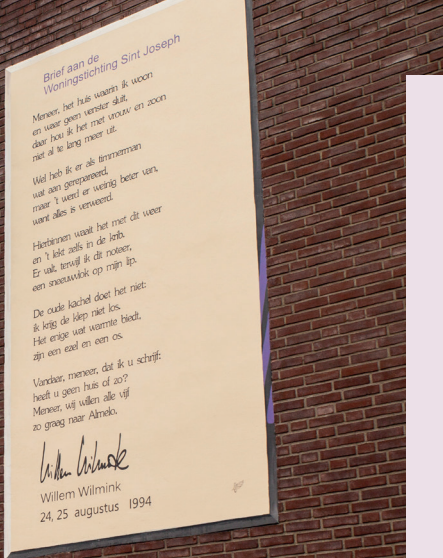 Brief aan de
Woningstichting Sint Joseph
Meneer, het huis waarin ik woon
en waar geen venster sluit,
daar hou ik het met vrouw en zoon
niet al te lang meer uit.
Wel heb ik er als timmerman
wat aan gerepareerd,
maar 't werd er weinig beter van,
want alles is verweerd.
Hierbinnen waait het met dit weer
en 't lekt zelfs in de krib.
Er valt, terwijl ik dit noteer,
een sneeuwvlok op mijn lip.
De oude kachel doet het niet:
ik krijg de klep niet los.
Het enige wat warmte biedt,
zijn een ezel en een os.
Vandaar, meneer, dat ik u schrijf:
heeft u geen huis of zo?
Meneer, wij willen alle vijf
zo graag naar Almelo.
Willem Wilmink
Willem Wilmink
24, 25 augustus 1994